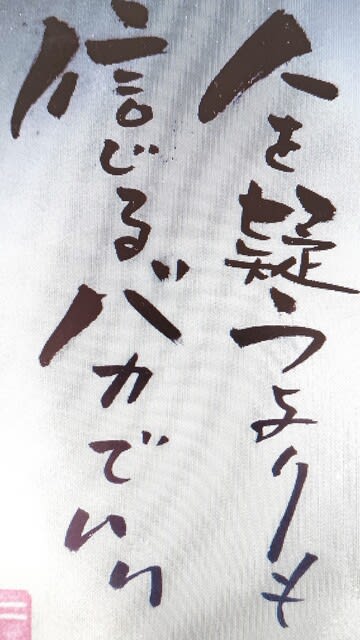 人を疑うよりも
信じるバカでいい